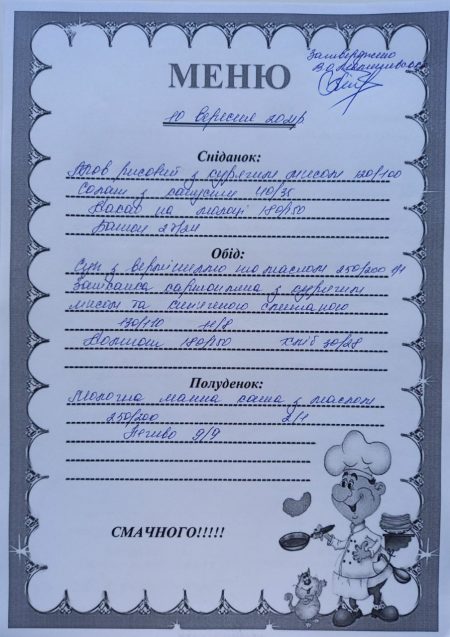 Затверджено
МЕНЮ
10 вересня 2024р
Сніданок:
Плов рисовий з курячим мясом 130/100
Салат з капусти 40/35
Какао на молоці 180/150
Батон 27/24
Обід:
Суп з вермішеллю та маслом 250/200
Запіканка картопляна з курячим
мясом та сметаною
130/110 11/8
Компот 180/150 хліб 30/28
Полуденок:
Молочна манна каша з маслом
250/200 2/1
Печиво 9/9
СМАЧНОГО!!!!!